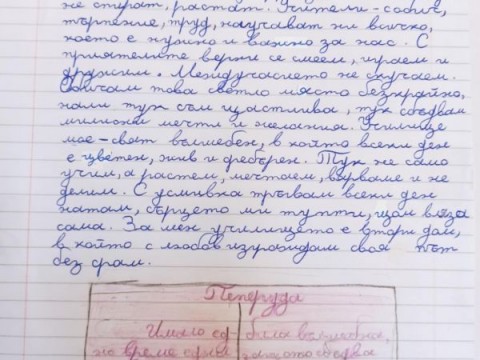 не спират, растат. Учители - с обич,
търпение, труд, научават ни всичко,
което е нужно и важно за нас. С
приятелите верни се смеем, играем и
дружим. Междучасието не скучаем.
Обичам това светло място безкрайно,
нали тук съм щастлива, тук сбъдвам
милиони мечти и желания. Училище
мое - свят вълшебен, в който всеки ден
е цветен, жив и
Тук не само
учим, а растем, мечтаем, вярваме и не
С усмивка тръгвам всеки ден
натам, сърцето ми тупти, щом вляза
сама. За мен училището е втори дом,
в който с любов изграждам своя път
без срам.
Пеперуда
Имало ед- била вълшебна,
но време една